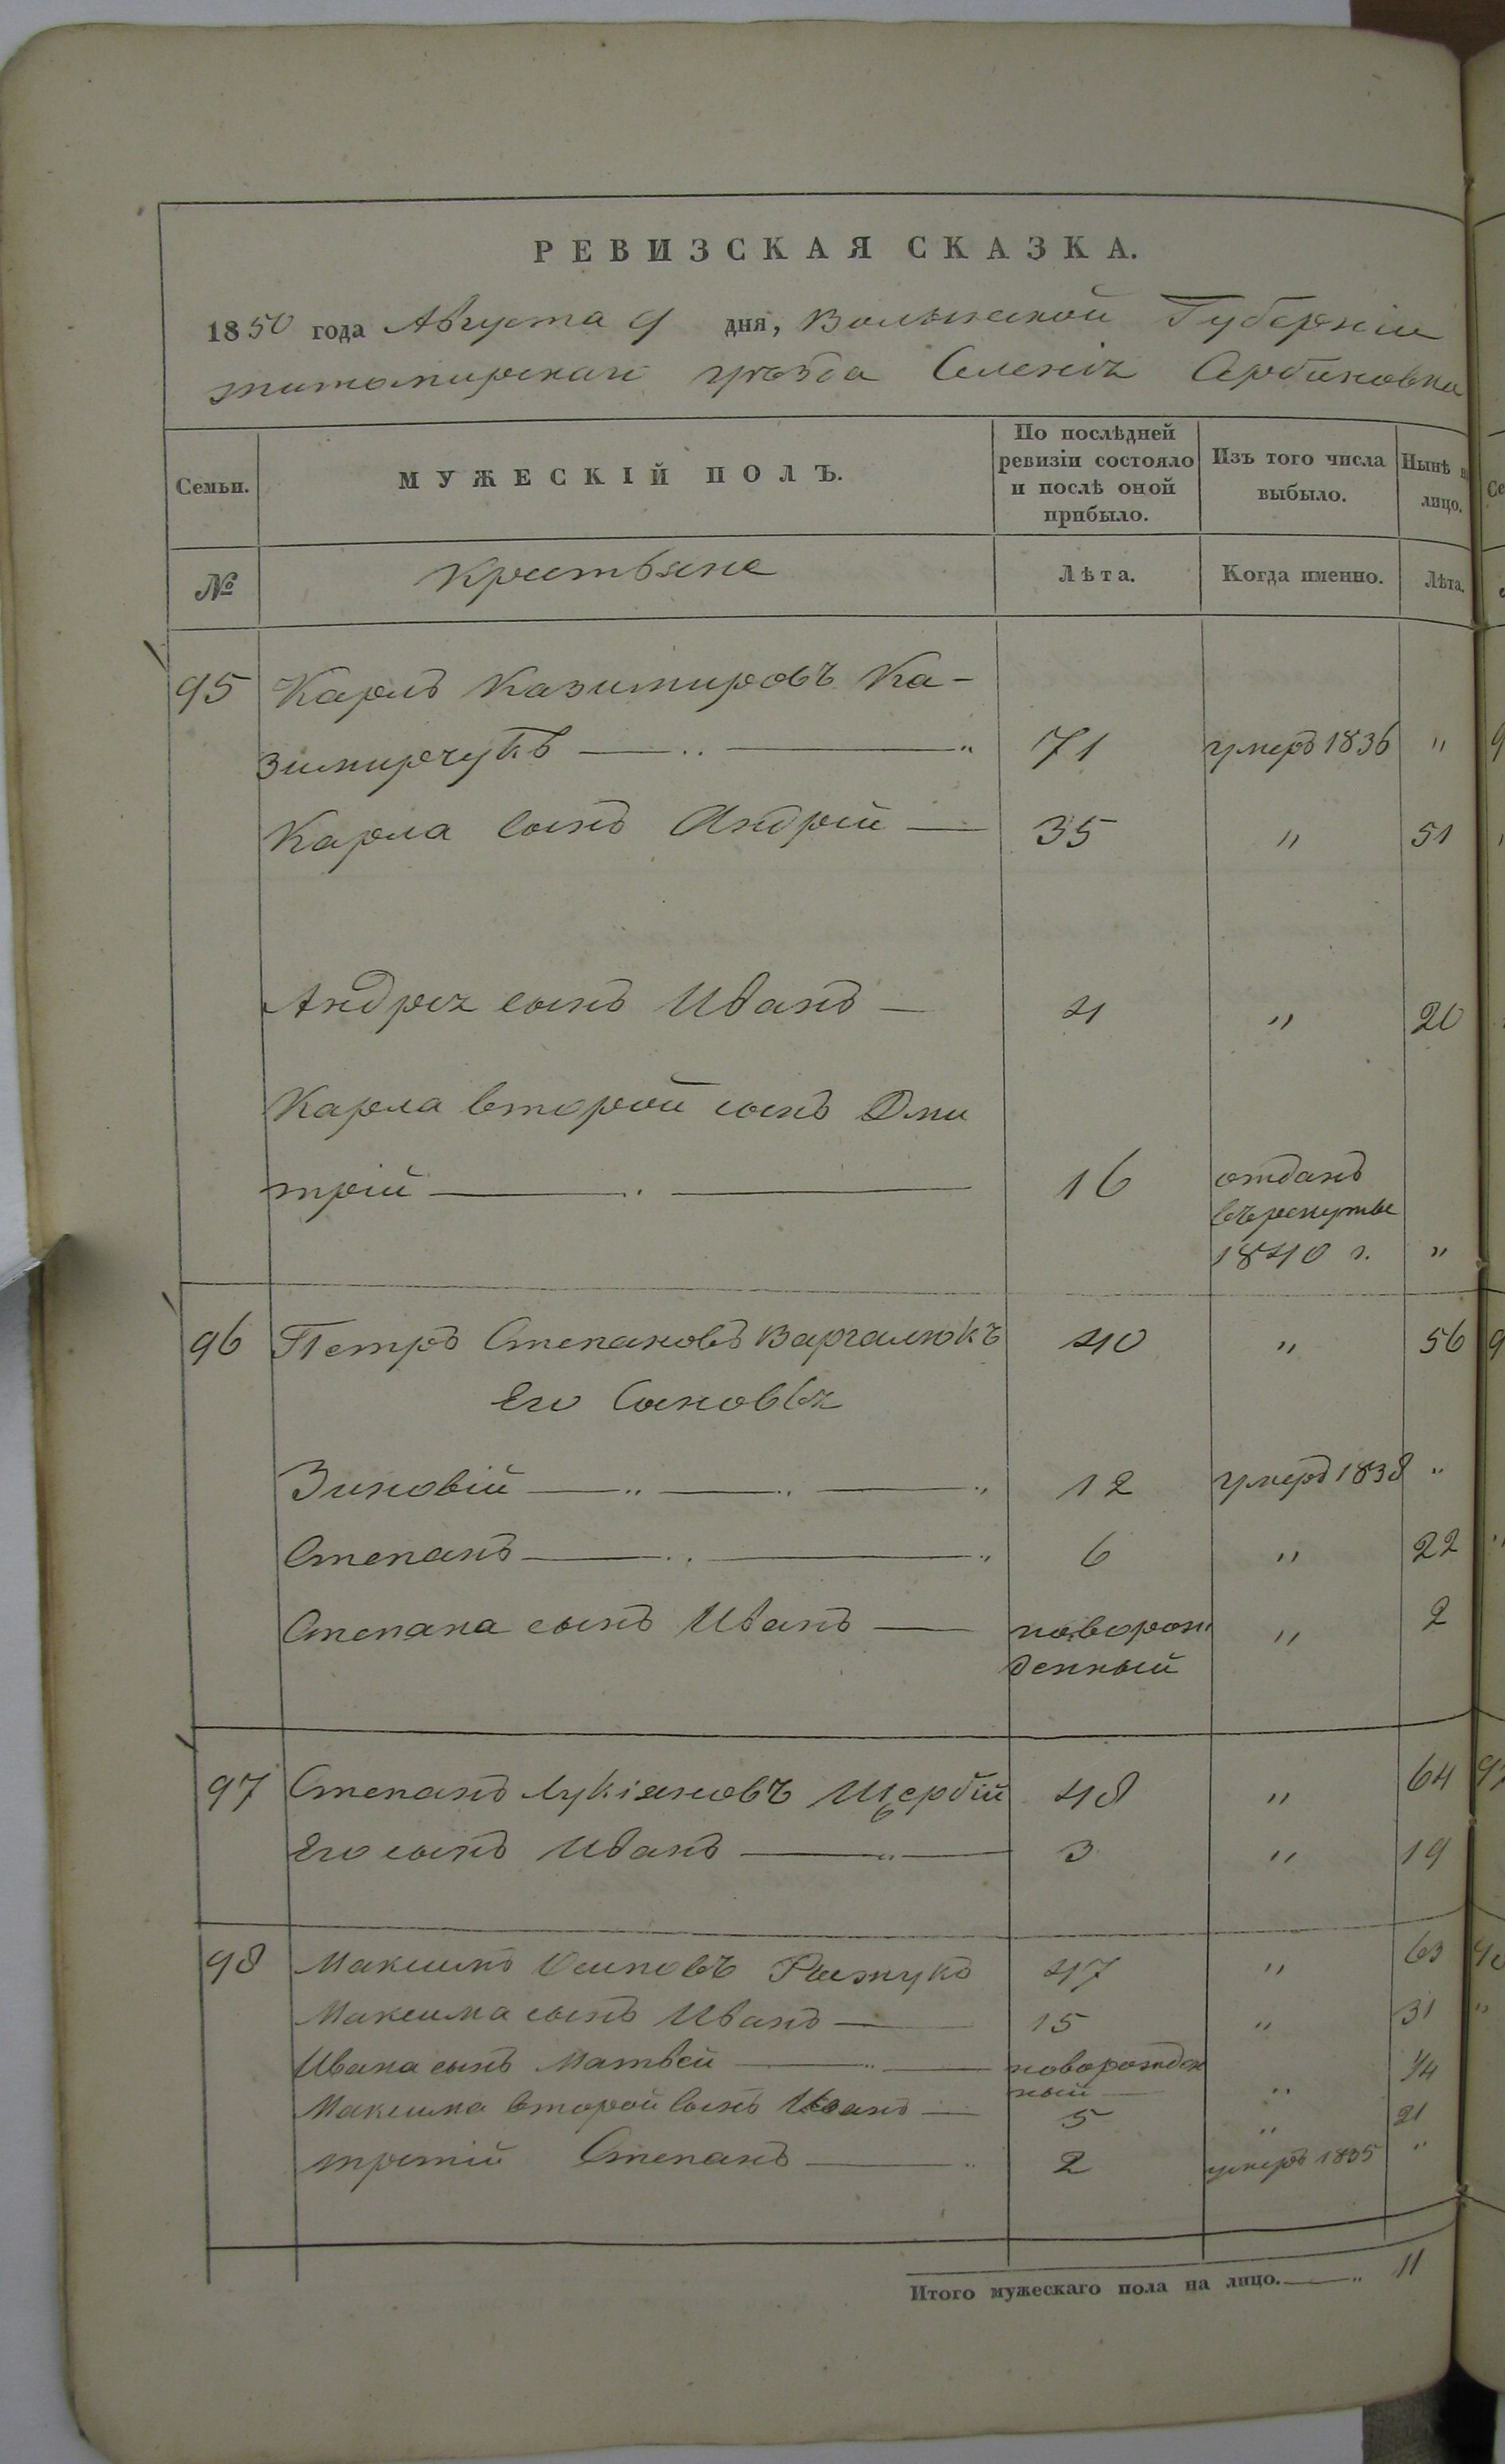 РЕВИЗСКАЯ СКАЗКА.
1850 года Августа 9 дня, Волынской Губерніи
житомирскаго уѣзда Селенія Сербиновка
Семьи. МУЖЕСКІЙ ПОЛЪ. По послѣдней ревизіи состояло и послѣ оной прибыло. Изъ того числа выбыло. Нынѣ н лицо.
№ Крестьяне Лѣта. Когда именно. Лѣта.
95 Карлъ Казимировъ Ка-
зимирчукъ — „ — „ 71 умеръ 1836 „
Карла сынъ Андрей — 35 „ 51
Андрея сынъ Иванъ — 4 „ 20
Карла второй сынъ Дми
трій — „ — 16 отданъ
въ рекруты
1840 г. „
96 Петръ Степановъ Варгалюкъ 40 „ 56
Его Сыновья
Зиновій — „ — „ — „ 12 умеръ 1838 „
Степанъ — „ — „ 6 „ 22
Степана сынъ Иванъ — новорож „ 2
денный
97 Степанъ Лукіяновъ Щербій 48 „ 64
Его сынъ Иванъ — „ — 3 „ 19
98 Максимъ Осиповъ 47 „ 63
Максима сынъ Иванъ — 15 „ 31
Ивана сынъ Матвей — „ — новорожден 1/4
ный — „
Максима второй сынъ Иванъ — 5 „ 21
третій Степанъ — „ 2 умеръ 1835 „
Итого мужескаго пола на лицо. — „ 11